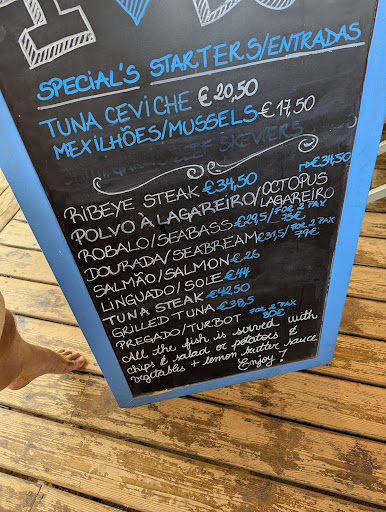 SPECIAL'S STARTERS/ENTRADAS
TUNA CEVICHE €20,50
MEXILHÕES/MUSSELS €17,50
SKEWERS
RIBEYE STEAK €34,50
POLVO À LAGAREIRO/OCTOPUS LAGAREIRO €34,50
ROBALO/SEABASS €29,5/FOR 2 PAX 75€
DOURADA/SEABREAM €31,5/FOR 2 PAX 77€
SALMÃO/SALMON €26
LINGUADO/SOLE €44
TUNA STEAK €42,50
GRILLED TUNA €38,5
PREGADO/TURBOT FOR 2 PAX 80€
All the fish is served with
chips & salad or potatoes &
vegetables + lemon butter sauce
Enjoy!